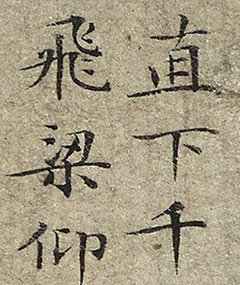 直下千
飛梁仰